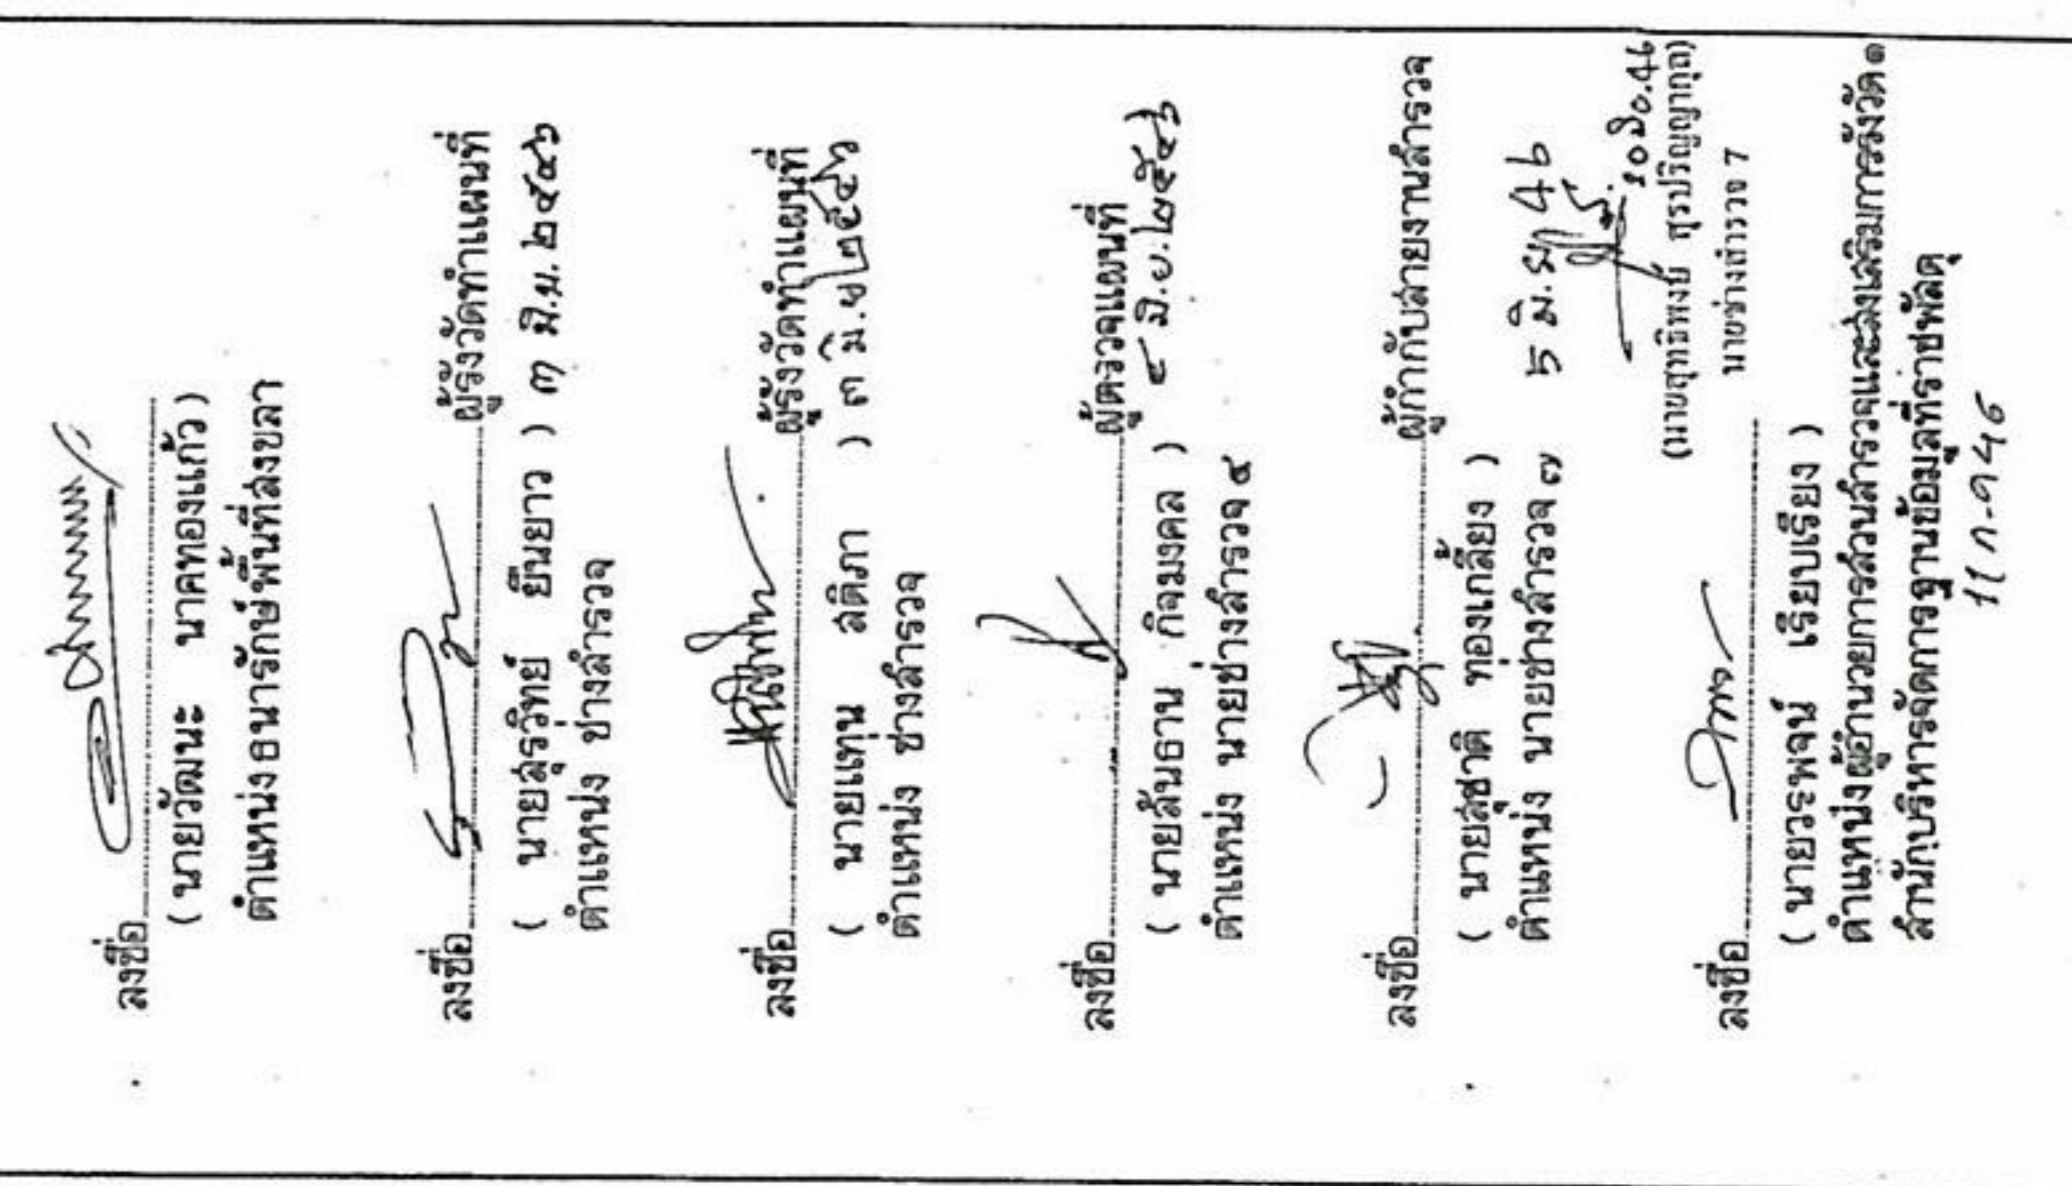 ลงชื่อ
(นายวัฒนะ นาคทองแก้ว)
ตำแหน่งธนารักษ์พื้นที่สงขลา
ลงชื่อ ผู้รังวัดทำแผนที่
( นายสุรวิทย์ ยืนยาว ) ๓ มิ.ย. ๒๕๔๖
ตำแหน่ง ช่างสำรวจ
ลงชื่อ ผู้รังวัดทำแผนที่
( นายแทุน สติภา ) ๓ มิ.ย ๒๕๔๖
ตำแหน่ง ช่างสำรวจ
ลงชื่อ ผู้ตรวจแผนที่
( นายสันธาน กิจมงคล ) ๔ มิ.ย. ๒๕๔๖
ตำแหน่ง นายช่างสำรวจ ๕
ลงชื่อ ผู้กำกับสายงานสำรวจ
( นายสุชาติ ทองเกลี้ยง )
ตำแหน่ง นายช่างสำรวจ ๗ 5 มิ.ย 46
10 มิย.46
(นายสุทธิพงษ์ สุรปริญญากุล)
นายช่างสำรวจ 7
ลงชื่อ
( นายวระพจน์ เรียบเรียง )
ตำแหน่งผู้อำนวยการส่วนสำรวจและส่งเสริมการรังวัด ๑
สำนักบริหารจัดการฐานข้อมูลที่ราชพัสดุ